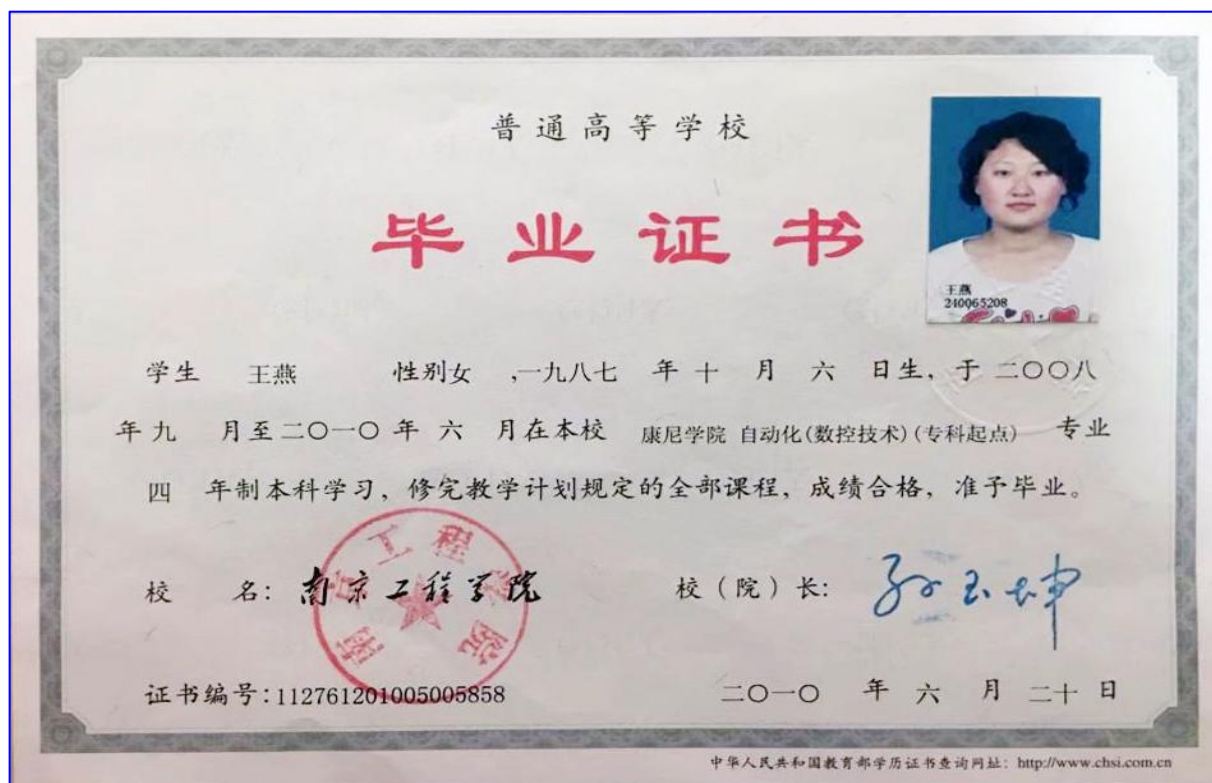 普通高等学校
毕业证书
王燕
240065208
学生 王燕 性别女 ,一九八七 年 十 月 六 日生, 于 二〇〇八
年 九 月至二〇一〇 年 六 月在本校 康尼学院 自动化(数控技术)(专科起点) 专业
四 年制本科学习, 修完教学计划规定的全部课程, 成绩合格, 准予毕业。
校 名: 南京工程学院 校(院)长: 孙玉坤
南京工程学院
证书编号:112761201005005858 二〇一〇 年 六 月 二十 日
中华人民共和国教育部学历证书查询网址: http://www.chsi.com.cn